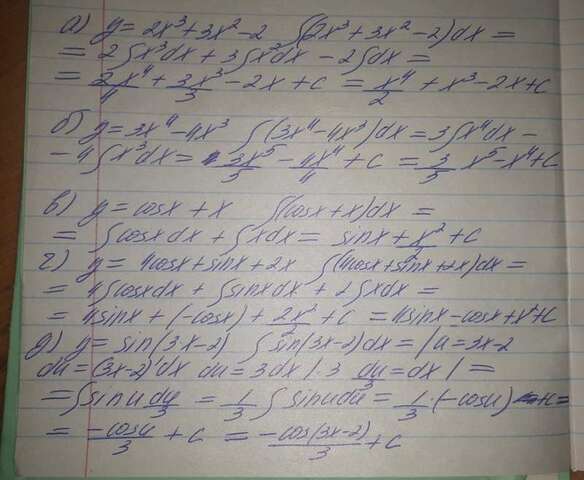 а) y = 2x³+3x²-2 ∫(2x³+3x²-2)dx =
= 2∫x³dx + 3∫x²dx - 2∫dx =
= 2x⁴/4 + 3x³/3 - 2x + c = x⁴/2 + x³ - 2x + c
б) y = 3x⁴-4x³ ∫(3x⁴-4x³)dx = 3∫x⁴dx -
- 4∫x³dx = 3x⁵/5 - 4x⁴/4 + c = 3/5 x⁵ - x⁴ + c
в) y = cosx + x ∫(cosx+x)dx =
= ∫cosxdx + ∫xdx = sinx + x²/2 + c
г) y = 4cosx + sinx + 2x ∫(4cosx+sinx+2x)dx =
= 4∫cosxdx + ∫sinxdx + 2∫xdx =
= 4sinx + (-cosx) + 2x²/2 + c = 4sinx - cosx + x² + c
д) y = sin(3x-2) ∫sin(3x-2)dx = |u = 3x-2
du = (3x-2)'dx du = 3dx |:3 du/3 = dx| =
= ∫sinu du/3 = 1/3 ∫sinudu = 1/3·(-cosu) + c =
= -cosu/3 + c = -cos(3x-2)/3 + c